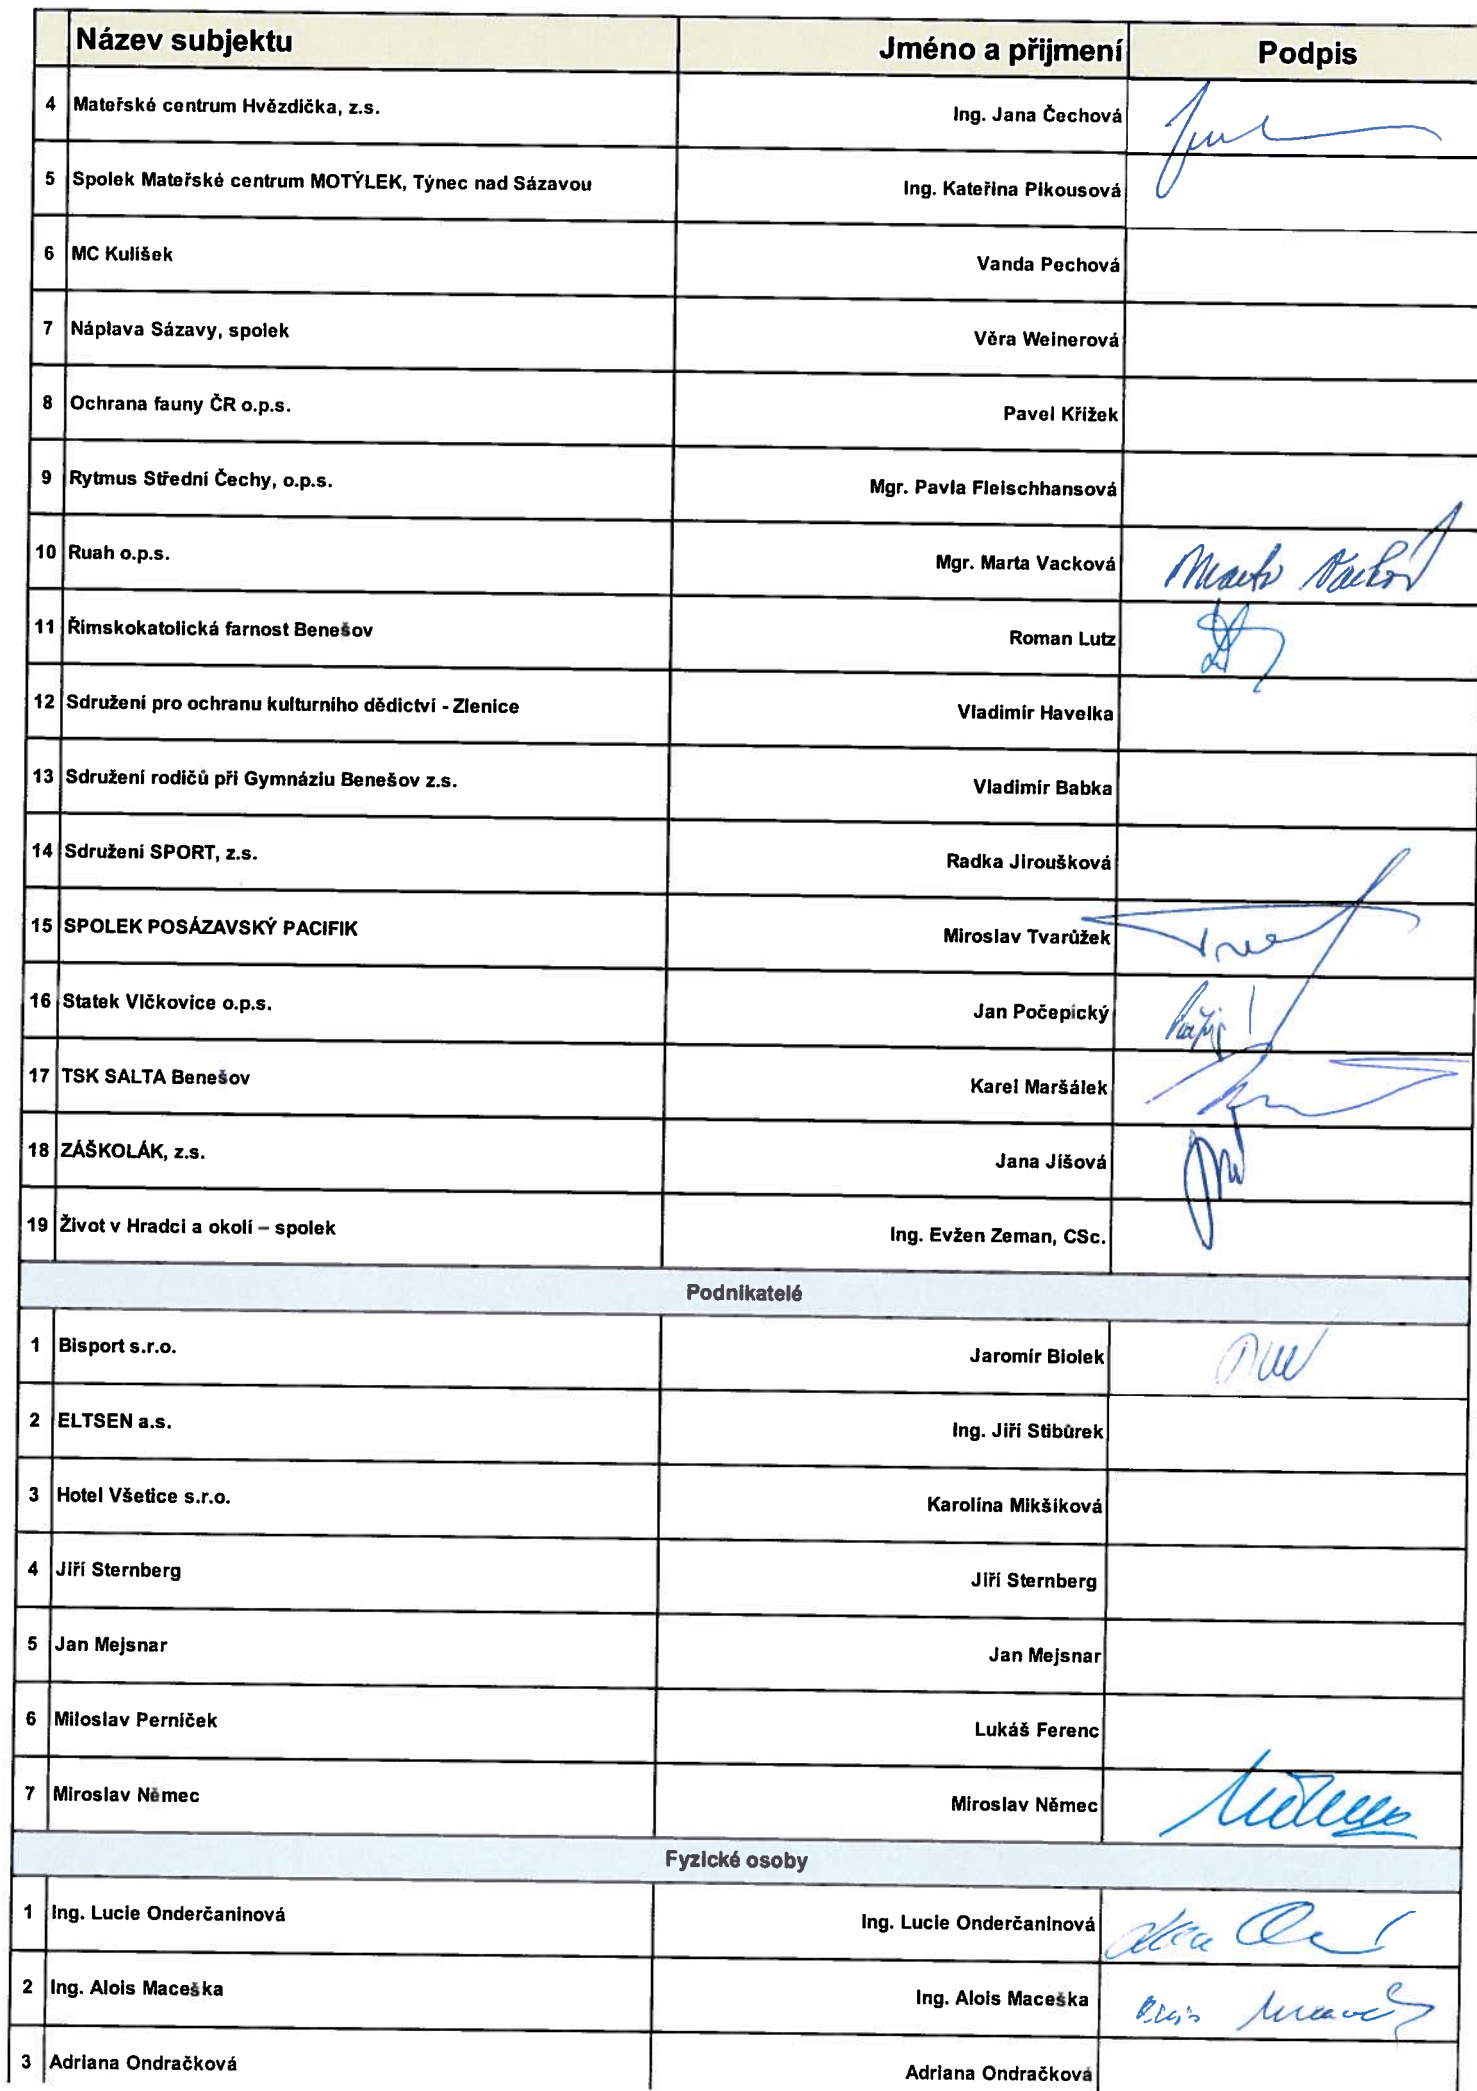 Název subjektu Jméno a přijmení Podpis
4 Mateřské centrum Hvězdička, z.s. Ing. Jana Čechová
5 Spolek Mateřské centrum MOTÝLEK, Týnec nad Sázavou Ing. Kateřina Pikousová
6 MC Kulíšek Vanda Pechová
7 Náplava Sázavy, spolek Věra Weinerová
8 Ochrana fauny ČR o.p.s. Pavel Křížek
9 Rytmus Střední Čechy, o.p.s. Mgr. Pavla Fleischhansová
10 Ruah o.p.s. Mgr. Marta Vacková
11 Římskokatolická farnost Benešov Roman Lutz
12 Sdružení pro ochranu kulturního dědictví - Zlenice Vladimír Havelka
13 Sdružení rodičů při Gymnáziu Benešov z.s. Vladimír Babka
14 Sdružení SPORT, z.s. Radka Jiroušková
15 SPOLEK POSÁZAVSKÝ PACIFIK Miroslav Tvarůžek
16 Statek Vlčkovice o.p.s. Jan Počepický
17 TSK SALTA Benešov Karel Maršálek
18 ZÁŠKOLÁK, z.s. Jana Jíšová
19 Život v Hradci a okolí – spolek Ing. Evžen Zeman, CSc.
Podnikatelé
1 Bisport s.r.o. Jaromír Biolek
2 ELTSEN a.s. Ing. Jiří Stibůrek
3 Hotel Všetice s.r.o. Karolína Mikšíková
4 Jiří Sternberg Jiří Sternberg
5 Jan Mejsnar Jan Mejsnar
6 Miloslav Perníček Lukáš Ferenc
7 Miroslav Němec Miroslav Němec
Fyzické osoby
1 Ing. Lucie Onderčaninová Ing. Lucie Onderčaninová
2 Ing. Alois Maceška Ing. Alois Maceška
3 Adriana Ondračková Adriana Ondračková